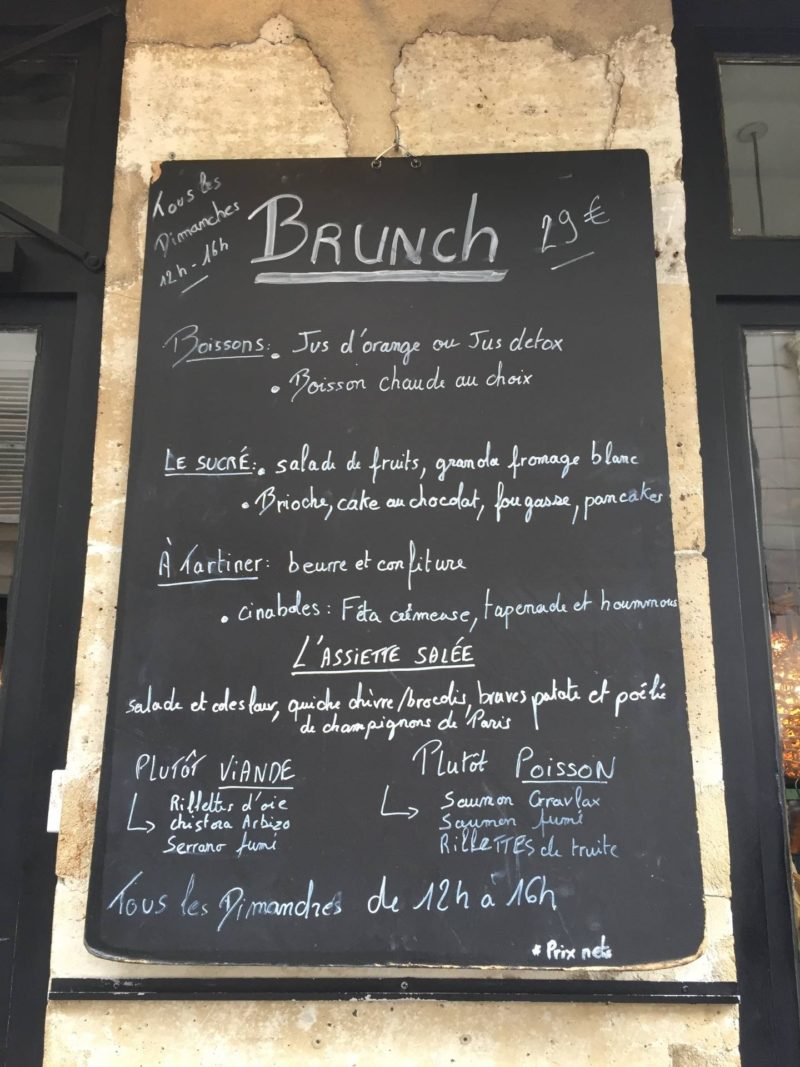 Tous les
Dimanches
12h - 16h
BRUNCH
29€
Boissons: • Jus d'orange ou Jus detox
• Boisson chaude au choix
LE SUCRÉ: • salade de fruits, granola fromage blanc
• Brioche, cake au chocolat, fougasse, pancakes
À Tartiner: beurre et confiture
• cinaboles: Féta crémeuse, tapenade et hoummous
L'ASSIETTE SALÉE
salade et coleslaw, quiche chèvre/brocolis, braves patate et poêlé
de champignons de Paris
PLUTÔT VIANDE
Rillettes d'oie
chistora Arbizo
Serrano fumé
Plutot POISSON
Saumon Gravlax
Saumon fumé
RILLETTES de truite
Tous les Dimanches de 12h à 16h
* Prix nets